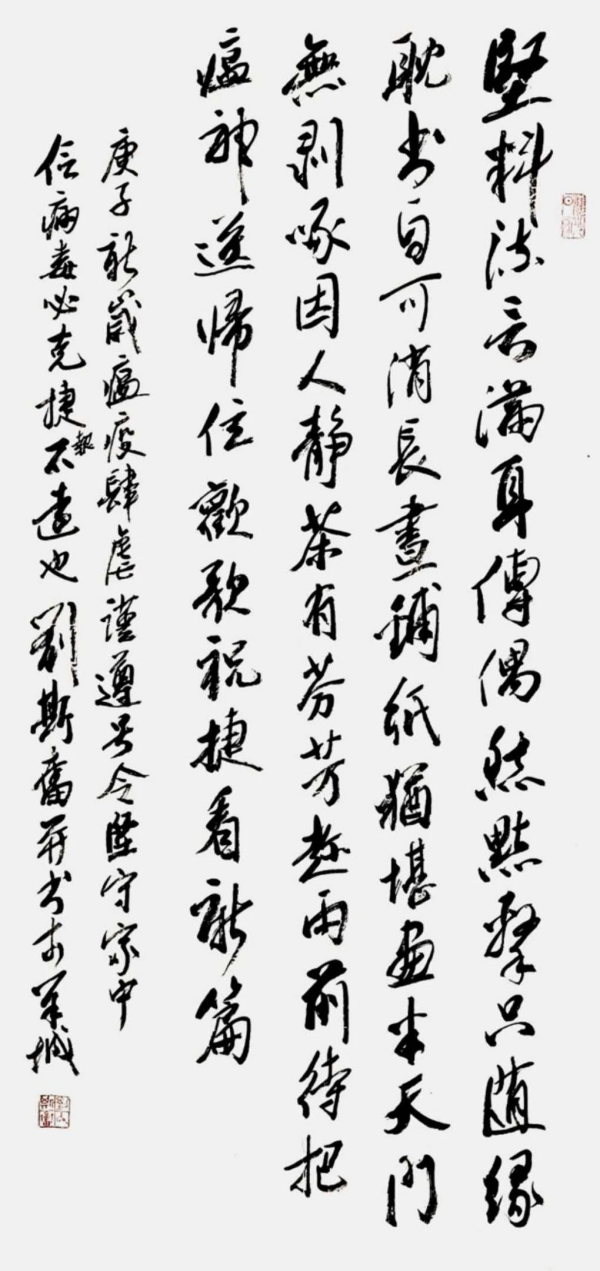 堅料流言滿耳傳偶然點擊只隨緣
耽書自可消長晝鋪紙猶堪畫半天門
無剥啄因人靜茶有芬芳趁雨前待把
瘟神送歸位歡歌祝捷看新篇
庚子新歲瘟疫肆虐謹遵号令堅守家中
信病毒必克捷報不遠也劉斯奮并書於羊城